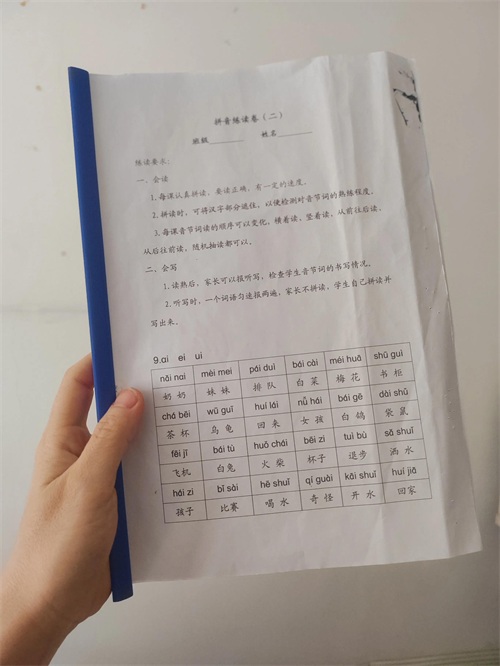 拼音练读卷（二）
班级________ 姓名________
练读要求：
一、会读
1. 每课认真拼读，要读正确，有一定的速度。
2. 拼读时，可将汉字部分遮住，以便检测对音节词的熟练程度。
3. 每课音节词读的顺序可以变化，横着读，竖着读，从前往后读，
从后往前读，随机抽读都可以。
二、会写
1. 读熟后，家长可以报听写，检查学生音节词的书写情况。
2. 听写时，一个词语匀速报两遍，家长不拼读，学生自己拼读并
写出来。
9.ai ei ui
nǎi nai mèi mei pái duì bái cài méi huā shū guì
奶奶 妹妹 排队 白菜 梅花 书柜
chá bēi wū guī huí lái nǚ hái bái gē dài shǔ
茶杯 乌龟 回来 女孩 白鸽 袋鼠
fēi jī bái tù huǒ chái bēi zi tuì bù sǎ shuǐ
飞机 白兔 火柴 杯子 退步 洒水
hái zi bǐ sài hē shuǐ qí guài kāi shuǐ huí jiā
孩子 比赛 喝水 奇怪 开水 回家